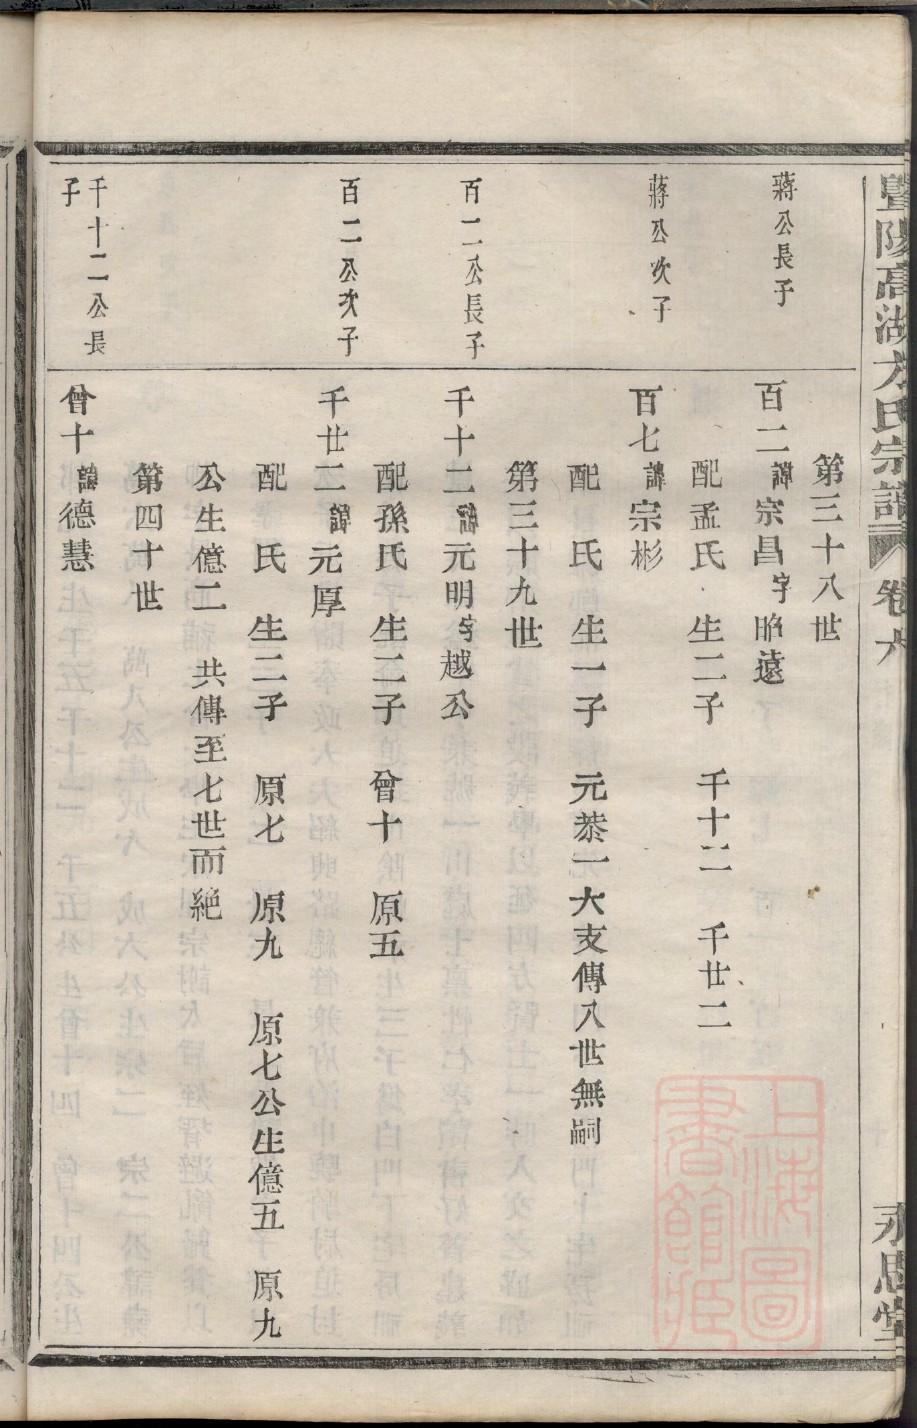 暨陽高湖方氏宗譜 卷六 永思堂
第三十八世
蔣公長子 百二諱宗昌字昭遠
配孟氏 生二子 千十二 千廿二
蔣公次子 百七諱宗彬
配 氏 生一子 元恭一大支傳八世無嗣
第三十九世
百二公長子 千十二諱元明字越公
配孫氏 生二子 曾十 原五
百二公次子 千廿二諱元厚
配 氏 生二子 原七 原九 原七公生億五 原九
公生億二 共傳至七世而絕
第四十世
千十二公長子 曾十諱德慧
上海圖書館藏